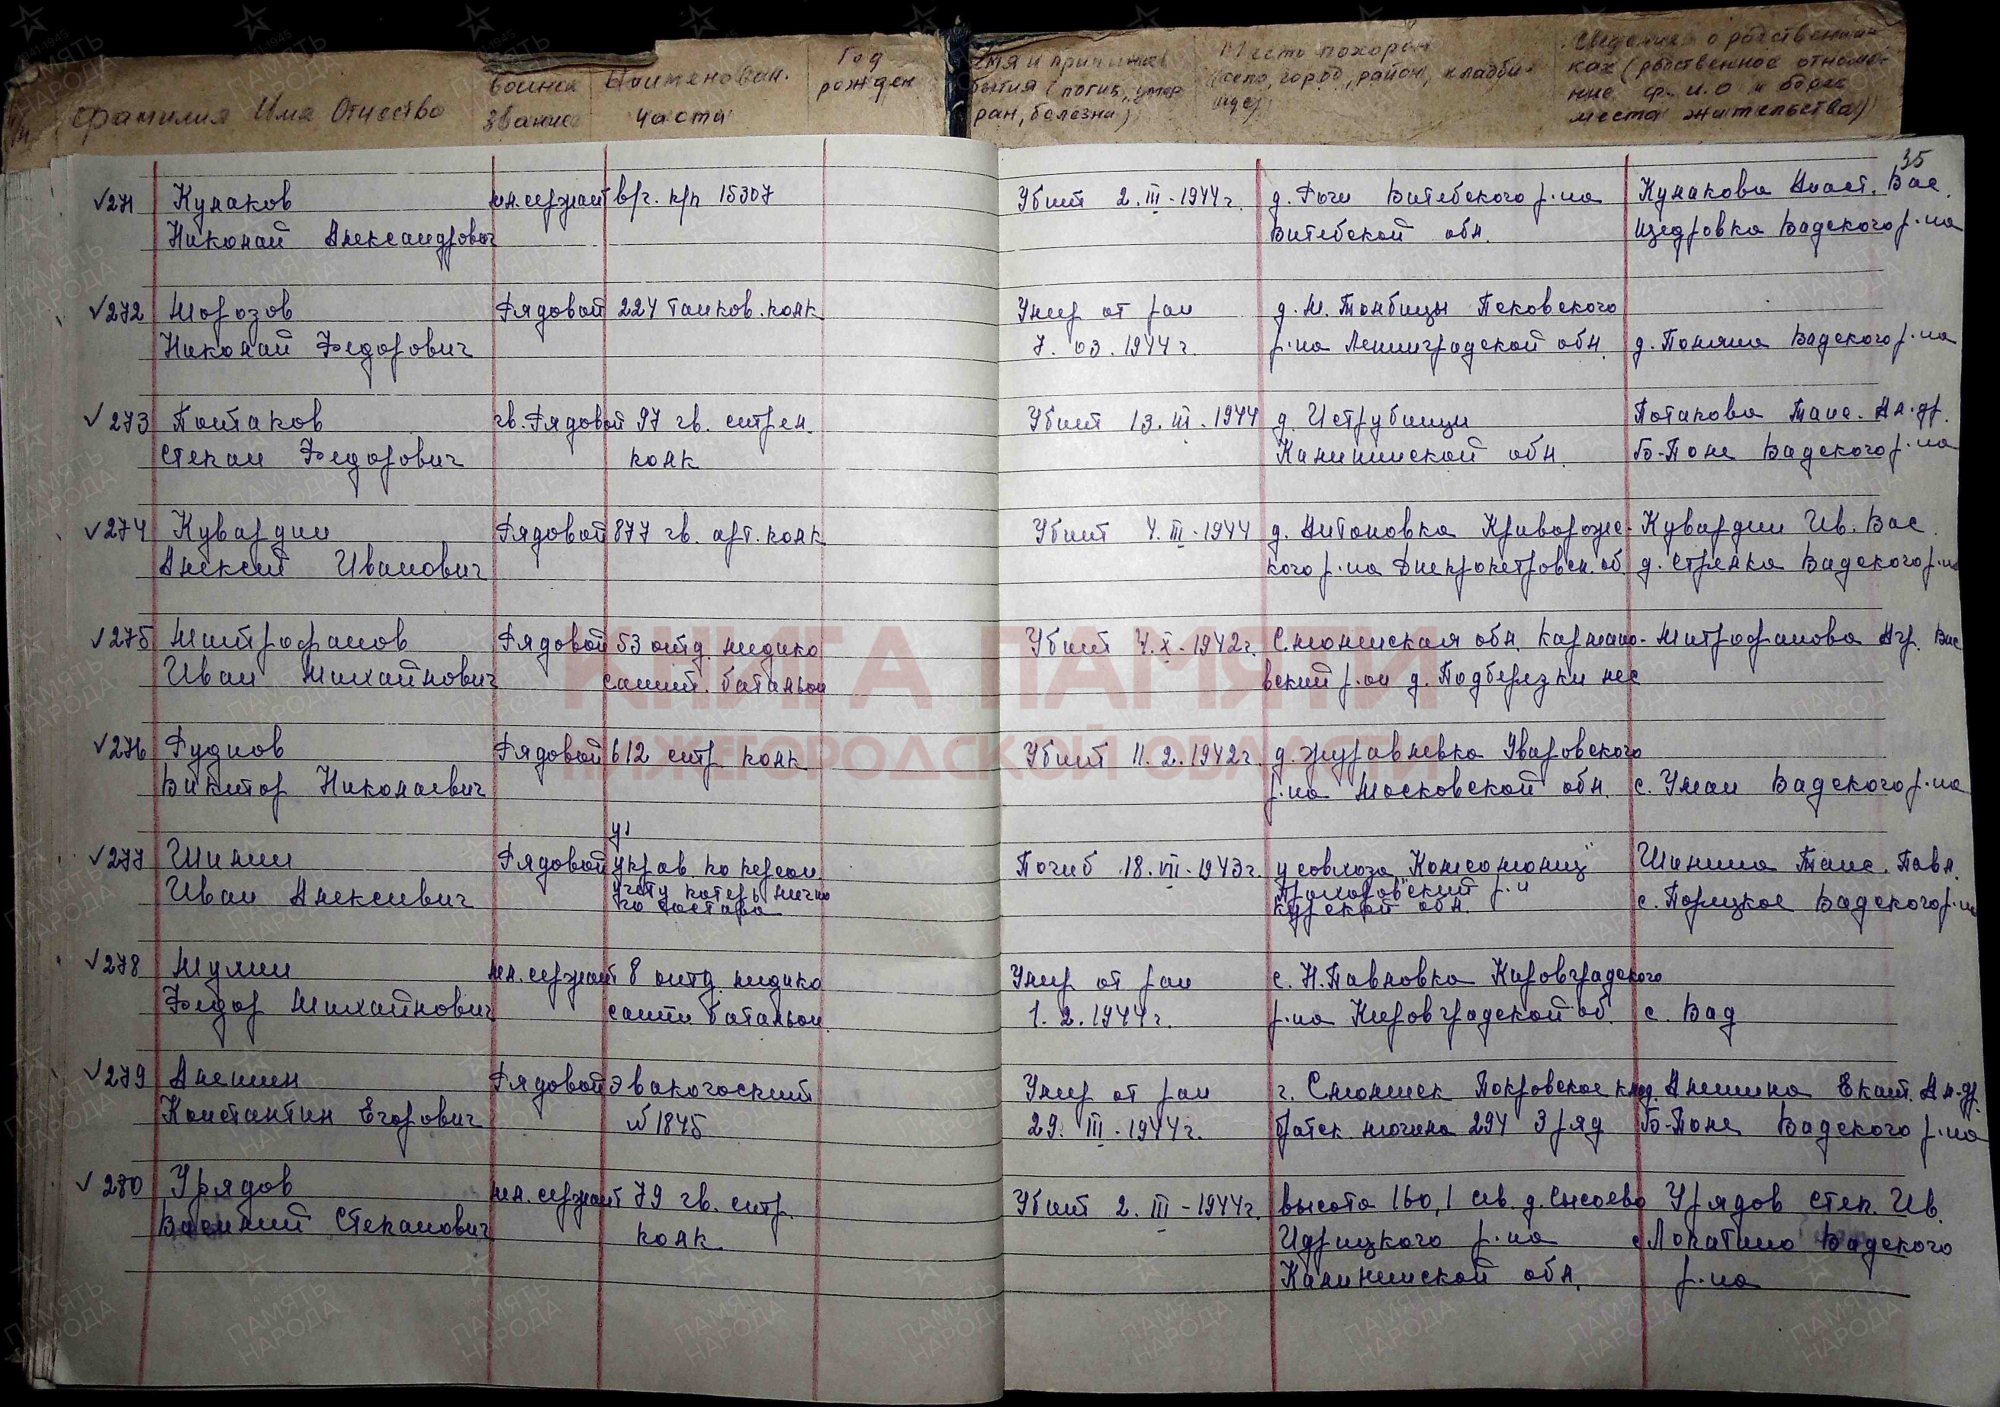 Фамилия Имя Отчество
воинск звание
Наименован. части
Год рожден
(погиб, умер от ран, болезни)
Место похорон (село, город, район, кладбище)
Сведения о родственниках (родственное отношение ф.и.о и адрес места жительства)
35
√271 Кулаков мл. сержант в/ч. п/п 15307 Убит 2.III.1944г. д. Роги Витебского р-на Кулакова Анаст. Вас.
Николай Александрович Витебской обл. Щедровка Вадского р-на
√272 Морозов Рядовой 224 танков. полк Умер от ран д. М. Толбицы Псковского
Николай Федорович 7.03.1944г. р-на Ленинградской обл. д. Поляна Вадского р-на
√273 Потаков гв. Рядовой 97 гв. стрел. Убит 13.III.1944 д. Иструбищи Потакова Таис. Ал-др.
Степан Федорович полк Калининской обл. Б-Поле Вадского р-на
√274 Кувардин Рядовой 877 гв. арт. полк Убит 4.III.1944 д. Антоновка Криворожс- Кувардин Ив. Вас.
Алексей Иванович кого р-на Днепропетровск. об. д. Стрелка Вадского р-на
√275 Митрофанов Рядовой 53 отд. медико Убит 4.X.1942г. Смоленская обл. Кармано- Митрофанова Агр. Вас
Иван Михайлович санит. батальон вский р-он д. Подберезки лес
√276 Руднов Рядовой 612 стр полк Убит 11.2.1942г. д. Журавлевка Уваровского
Виктор Николаевич р-на Московской обл. с. Умай Вадского р-на
√277 Шилин Рядовой управ. по персон Погиб 18.VII.1943г. у совхоза „Комсомолец" Шилина Таис. Павл.
Иван Алексеевич учету потерь лично Прохоровский р-н с. Порецкое Вадского р-на
го состава Курской обл.
√278 Мухин мл. сержант 8 отд. медико Умер от ран с. Н. Павловка Кировградского
Федор Михайлович санит. батальон. 1.2.1944г. р-на Кировградской об. с. Вад
√279 Алешин Рядовой Эвакогоспит Умер от ран г. Смоленск Покровское клад. Алешина Екат. Ал-др.
Константин Егорович №1845 29.III.1944г. братск. могила 294 3 ряд Б-Поле Вадского р-на
√280 Урядов мл. сержант 79 гв. стр. Убит 2.III-1944г. высота 160,1 сев. д. Сысоево Урядов Степ. Ив.
Василий Степанович полк Идрицкого р-на с Лопатино Вадского
Калининской обл. р-на
КНИГА ПАМЯТИ
НИЖЕГОРОДСКОЙ ОБЛАСТИ
ПАМЯТЬ НАРОДА